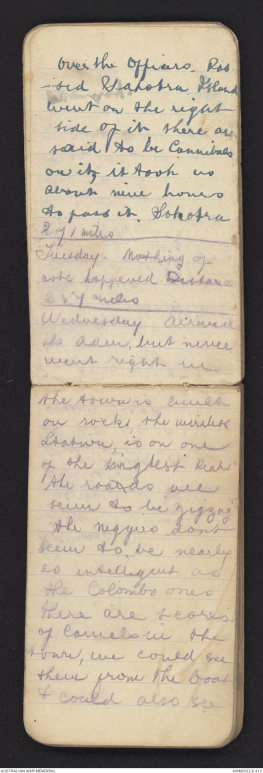 over the Officers. Pas-
-sed Island
went on the right
side of it there are
said to be Cannibals
on it, it took us
about nine hours
to pass it. Sokotra
271 miles
Tuesday. Nothing of
note happened Distance
257 miles
Wednesday arrived
at Aden, but never
went right in
the town is built
on rocks, the wireless
Station, is on one
of the highest Peak
the roads all
seem to be zigzag
the niggers dont
seem to be nearly
as intelligent as
the Colombo ones
there are scores
of Camels in the
town, we could see
them from the boat
& could also see
AUSTRALIAN WAR MEMORIAL